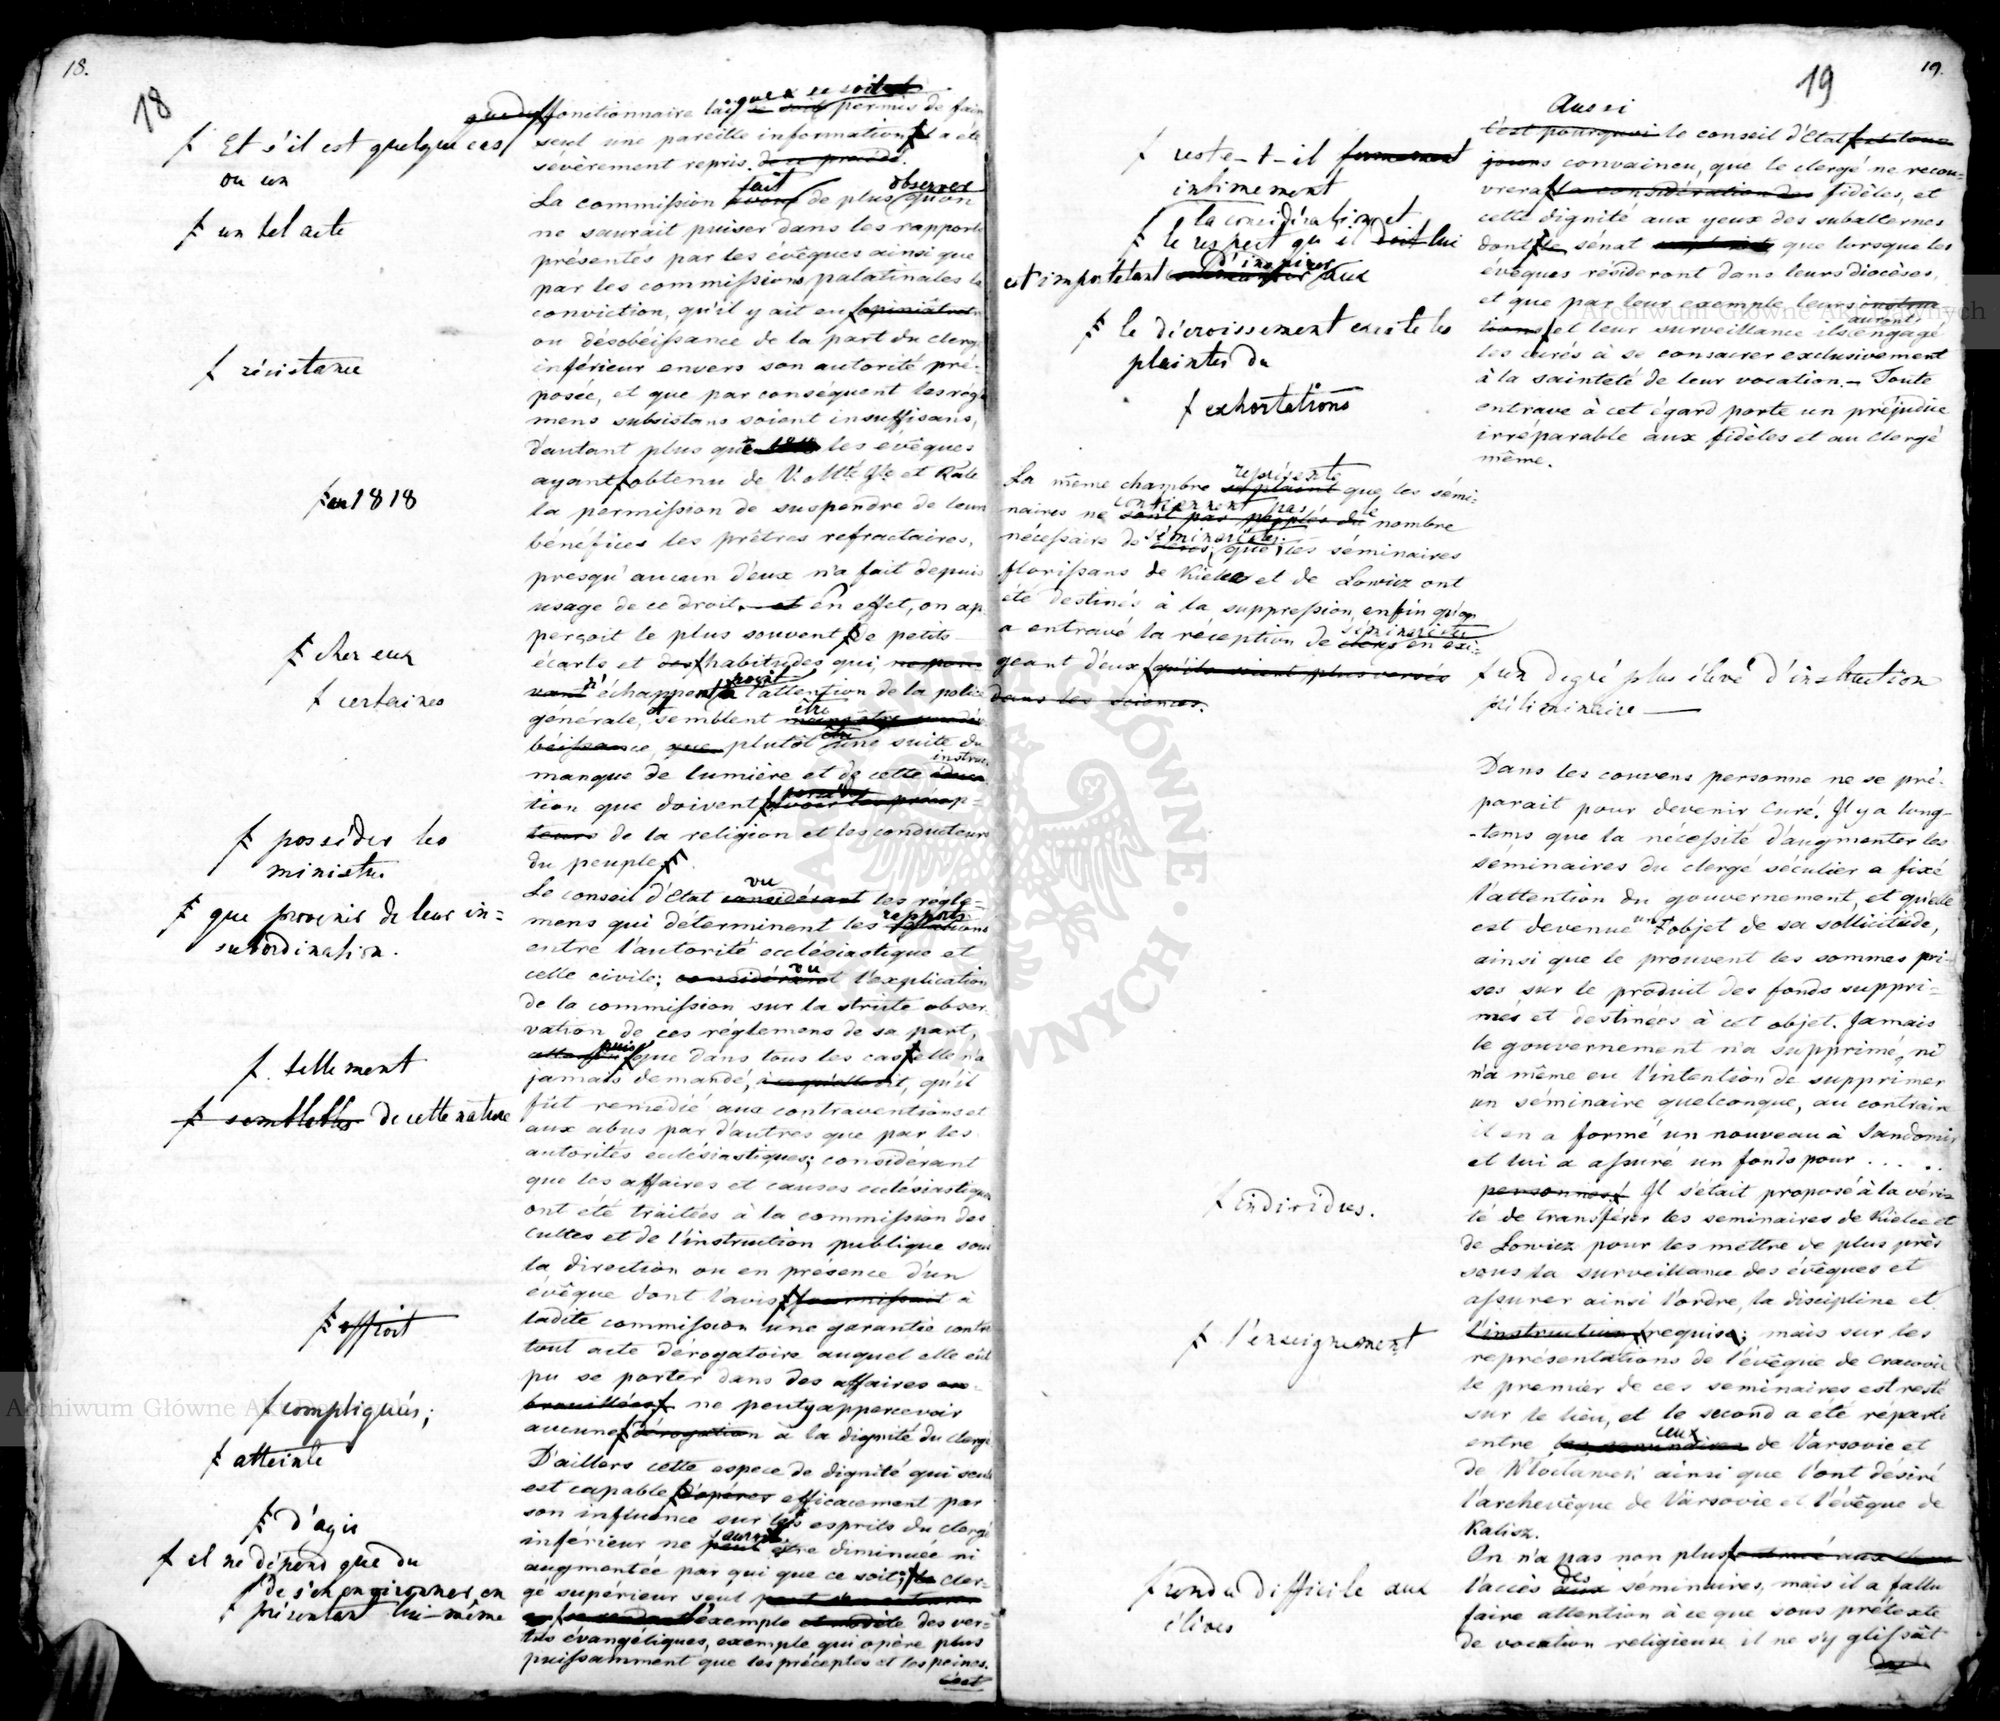 18.
18
ƒ Et s'il est quelque cas
ou un
ƒ un tel acte
ƒ résistance
ƒ en 1818
ƒ chez eux
ƒ certaines
ƒ posséder les
ministres
ƒ que provenir de leur in=
subordination.
ƒ. tellement
ƒ semblables de cette nature
ƒ offroit
ƒ compliqués;
ƒ atteinte
ƒ d'agir
ƒ il ne dépend que du
ƒ de s'en environner, en
ƒ présentant lui-même
que ce soit
fonctionnaire laïque permis de faire
seul une pareille information a été
sévèrement repris. de ce procédé.
fait observer
La commission avons de plus qu'on
ne saurait puiser dans les rapports
présentés par les évêques ainsi que
par les commissions palatinales la
conviction, qu'il y ait eu opiniâtreté
ou désobéissance de la part du clergé
inférieur envers son autorité pré=
posée, et que par conséquent les régle
mens subsistans soient insuffisans,
d'autant plus que les évêques
ayant obtenu de V. Mté Ile et Rale
la permission de suspendre de leurs
bénéfices les prêtres refractaires,
presqu'aucun d'eux n'a fait depuis
usage de ce droit. et en effet, on ap
perçoit le plus souvent de petits
écarts et des habitudes qui, ne pou
vant n'échappent à l'attention de la police
générale, et semblent être
béissance, que plutôt une suite du
instruc
manque de lumière et de cette éduca
tion que doivent avoir les précep=
teurs de la religion et les conducteurs
du peuple.
vu
Le conseil d'Etat considérant les régle=
rapports
mens qui déterminent les relations
entre l'autorité ecclésiastique et
vu
celle civile; considérant l'explication
de la commission sur la stricte obser
vation de ces réglemens de sa part,
puis
que dans tous les cas elle n'a
jamais demandé, à ce qu'elle dit, qu'il
fût remédié aux contraventions et
aux abus par d'autres que par les
autorités ecclésiastiques; considérant
que les affaires et causes ecclésiastiques
ont été traitées à la commission des
cultes et de l'instruction publique sous
la direction ou en présence d'un
évêque dont l'avis fournissait à
ladite commission une garantie contre
tout acte dérogatoire auquel elle eût
pu se porter dans des affaires em=
brouillées ne peut y appercevoir
aucune dérogation à la dignité du clergé
D'aillers cette espece de dignité qui seule
est capable d'opérer efficacement par
son influence sur les esprits du clergé
saurait
inférieur ne peut être diminuée ni
augmentée par qui que ce soit; le cler=
gé supérieur seul peut s'en entourer
l'exemple et modèle des ver=
tus évangéliques, exemple qui opère plus
puissamment que les préceptes et les peines.
C'est
19
19.
ƒ reste-t-il fermement
intimement
ƒ la considération et
ƒ le respect qu'il doit lui
d'inspirer
est important aux
ƒ le décroissement existe les
plaintes du
ƒ exhortations
Aussi
C'est pourquoi le conseil d'Etat est tou=
jours convaincu, que le clergé ne recou=
vrera la considération des fidèles, et
cette dignité aux yeux des subalternes
dont le sénat que lorsque les
évêques résideront dans leurs diocèses,
et que par leur exemple, leurs instruc
auront
tions et leur surveillance ils engagé
les curés à se consacrer exclusivement
à la sainteté de leur vocation. — Toute
entrave à cet égard porte un préjudice
irréparable aux fidèles et au clergé
même.
représente
La même chambre se plaint que les sémi=
contiennent pas le
naires ne sont pas peuplés du nombre
séminaristes
nécessaire de clercs, que les séminaires
florissans de Kielce et de Lowicz ont
été destinés à la suppression, enfin qu'on
séminaristes
a entravé la réception de clercs en exi=
geant d'eux qu'ils soient plus versés
dans les sciences.
ƒ un degré plus élevé d'instruction
préliminaire —
Dans les couvens personne ne se pré=
parait pour devenir Curé. Il y a long-
-tems que la nécessité d'augmenter les
séminaires du clergé séculier a fixé
l'attention du gouvernement, et qu'elle
est devenue un objet de sa sollicitude,
ainsi que le prouvent les sommes pri=
ses sur le produit des fonds suppri=
més et destinées à cet objet. Jamais
le gouvernement n'a supprimé, ni
n'a même eu l'intention de supprimer
un séminaire quelconque, au contraire
il en a formé un nouveau à Sandomir
et lui a assuré un fonds pour . . . . .
personnes! Il s'était proposé à la véri=
té de transférer les seminaires de Kielce et
de Lowicz pour les mettre de plus près
sous la surveillance des évêques et
assurer ainsi l'ordre, la discipline et
l'instruction requise; mais sur les
représentations de l'évêque de Cracovie
le premier de ces seminaires est resté
sur le lieu, et le second a été réparti
ceux
entre les seminaires de Varsovie et
de Wloclawek ainsi que l'ont désiré
l'archevêque de Varsovie et l'évêque de
Kalisz.
On n'a pas non plus fermé aux clercs
des
l'accès aux séminaires, mais il a fallu
faire attention à ce que sous prétexte
de vocation religieuse il ne s'y glissât
ƒ individus.
ƒ l'enseignement
ƒ rendu difficile aux
élèves
Archiwum Główne Akt Dawnych
Archiwum Główne Akt Dawnych